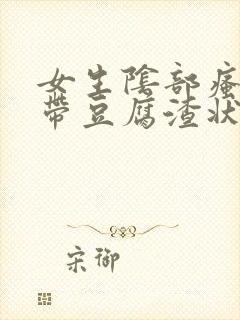 女生陰部瘙
帶豆腐渣狀
宋御